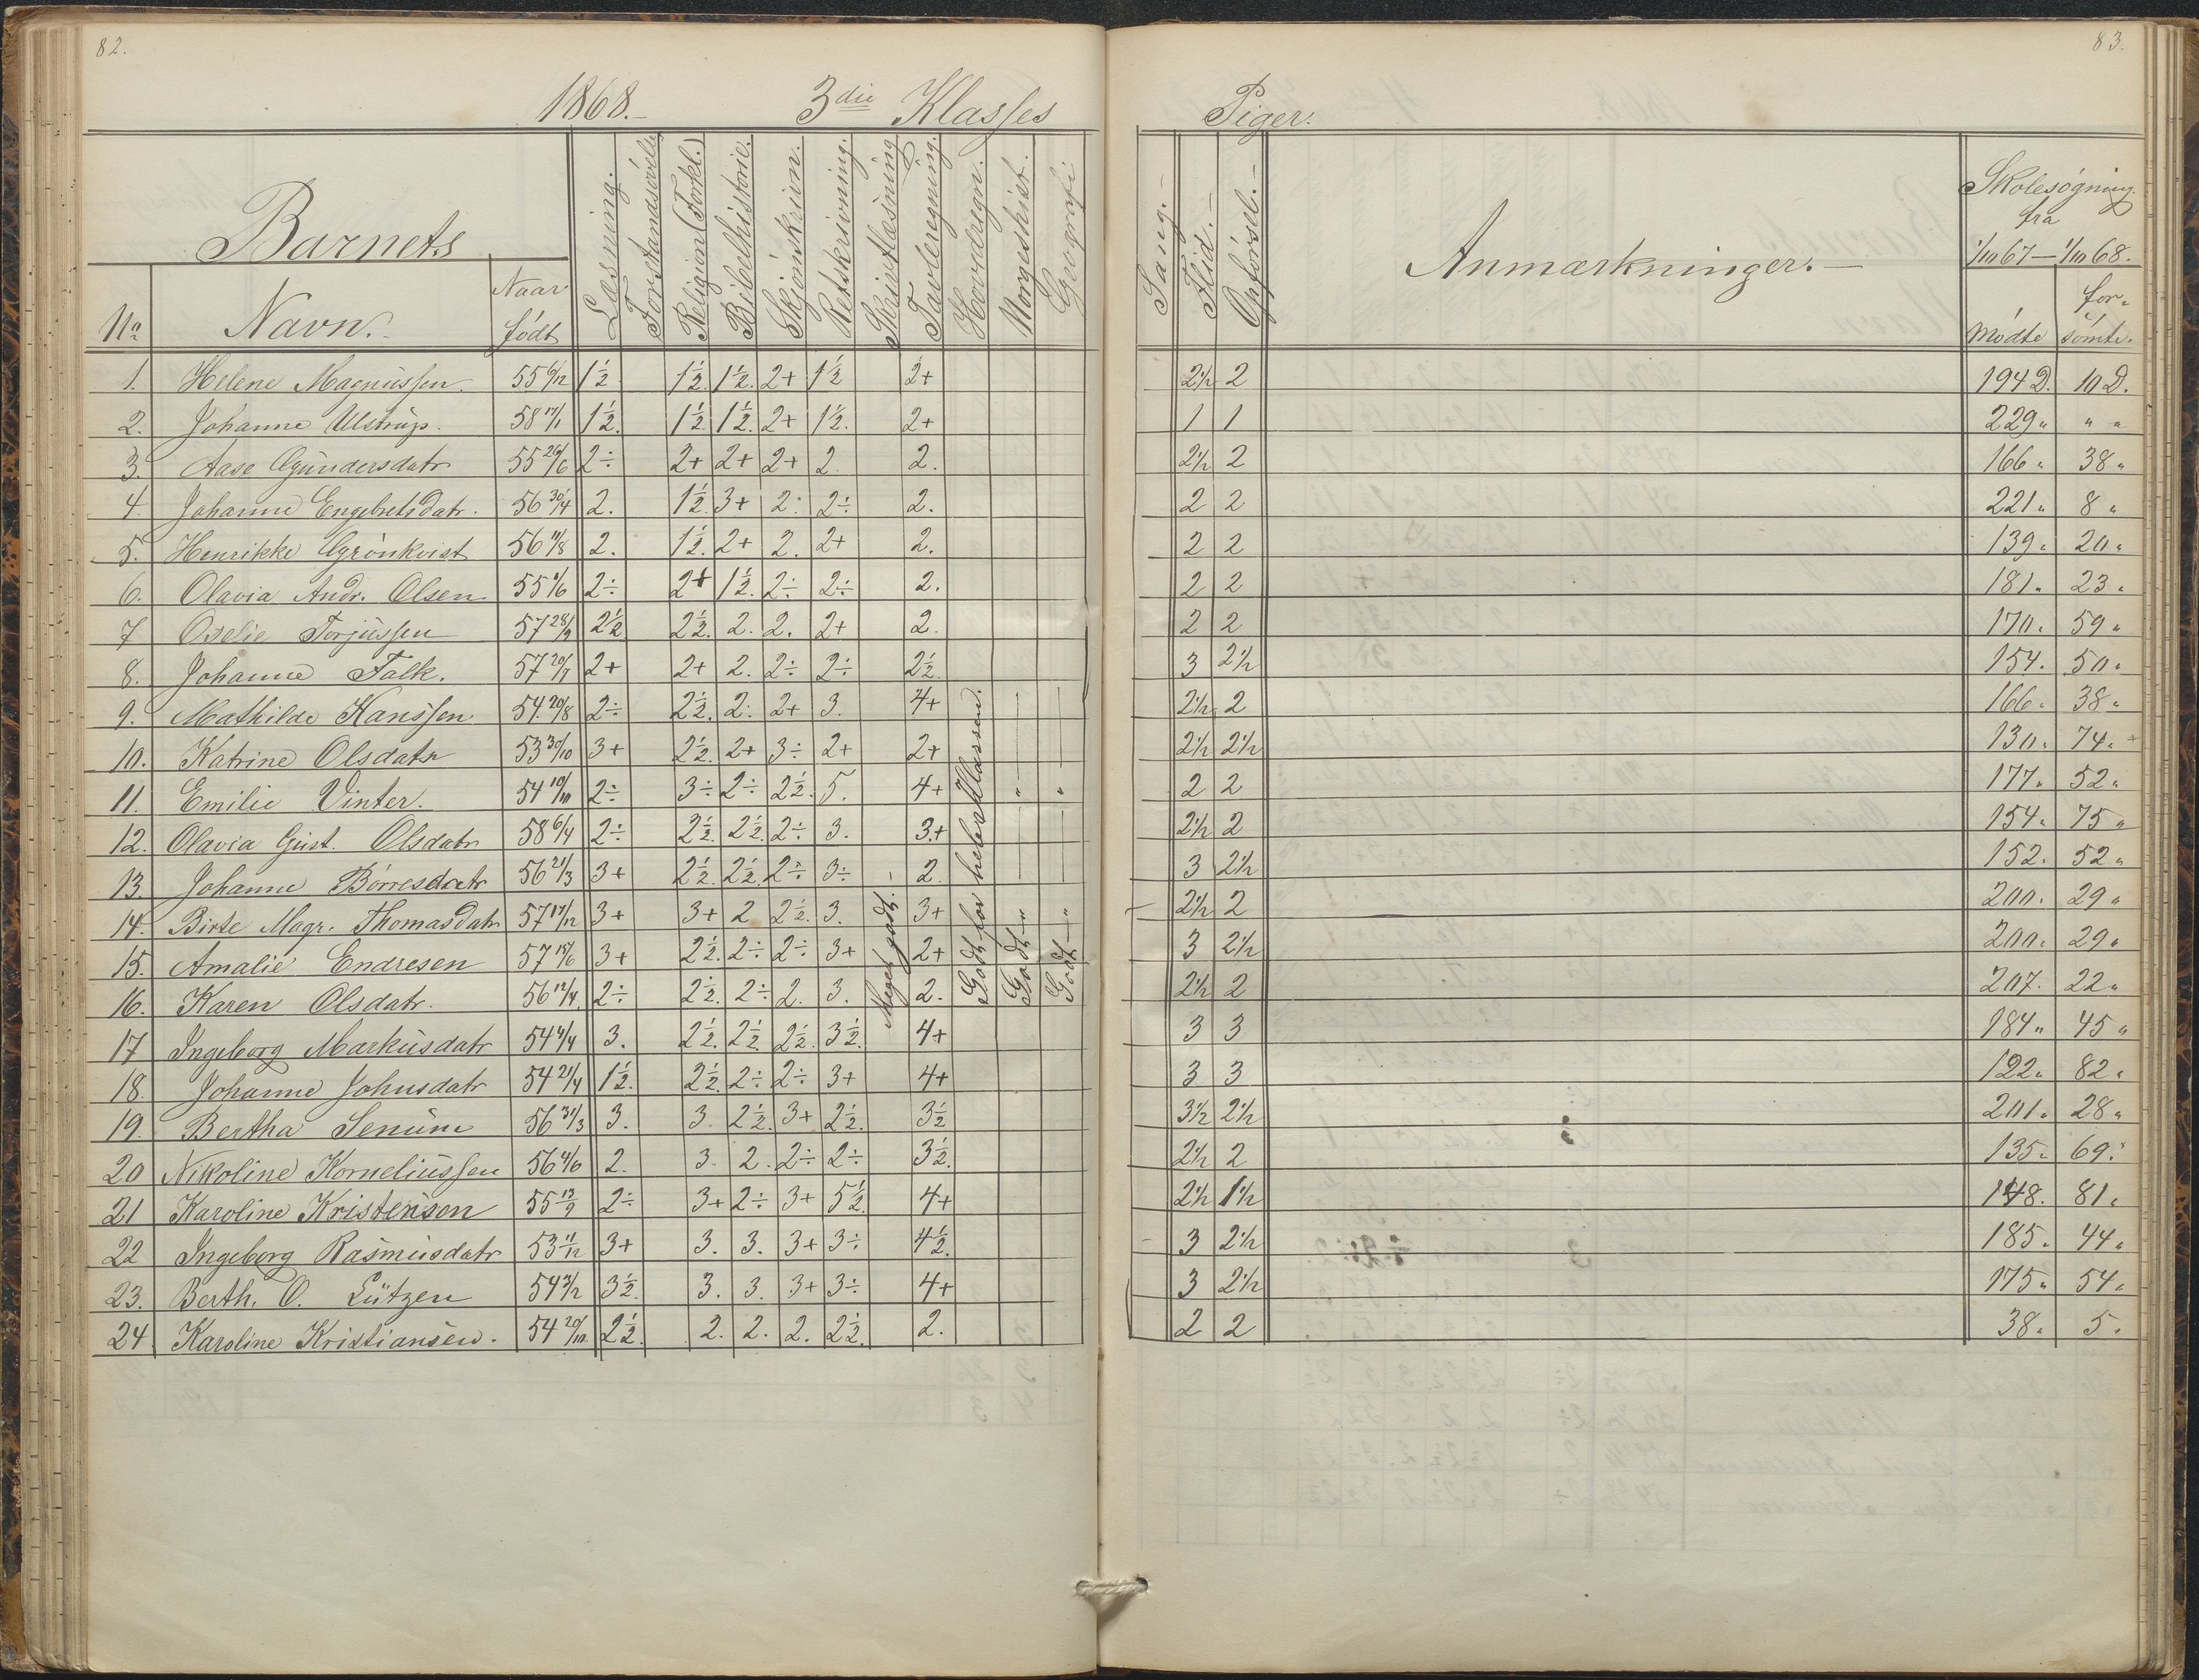 82.
83.
1868.– 3die Klasses Piger.
Barnets
No Navn. Naar født Læsning. Forstandsøvelse Religion (Forkl.) Bibelhistorie. Skjönskrivn. Retskrivning. Skriftlæsning Tavleregning. Hovedregn. Norgeshist. Geografi Sang.– Flid.– Opförsel.– Anmærkninger.– Skolesøgning fra 1/10 67 – 1/10 68. mödte forsömte.
1. Helene Magnussen 55 6/12 1½ 1½. 1½. 2+ 1½ 2+ 2½ 2 194 D. 10 D.
2. Johanne Ulstrup. 58 17/1 1½. 1½ 1½. 2+ 1½. 2+ 1 1 229 " " "
3. Aase Gundersdatr 55 26/6 2÷ 2+ 2+ 2+ 2. 2. 2½ 2 166 " 38 "
4. Johanne Engebretsdatr. 56 30/4 2. 1½. 3+ 2÷ 2÷ 2. 2 2 221 " 8 "
5. Henrikke Grönkvist 56 11/8 2. 1½. 2+ 2. 2+ 2. 2 2 139 " 20 "
6. Olavia Andr. Olsen 55 1/6 2÷ 2+ 1½. 2÷ 2÷ 2. 2 2 181 " 23 "
7 Oselie Torjussen 57 28/9 2½ 2½. 2. 2. 2+ 2. 2 2 170 " 59 "
8. Johanne Falk. 57 20/7 2+ 2+ 2. 2÷ 2÷ 2½. 3 2½ 154 " 50 "
9. Mathilde Hanssen 54. 20/8 2÷ 2½. 2. 2+ 3. 4+ 2½ 2 166 " 38 "
10. Katrine Olsdatr 53 30/10 3+ 2½. 2+ 3÷ 2+ 2+ 2½ 2½ 130 " 74 "
11. Emilie Vinter. 54 10/10 2÷ 3÷ 2÷ 2½. 5. 4+ 2 2 177 " 52 "
12. Olavia Gust. Olsdatr 58 6/4 2÷ 2½. 2½. 2÷ 3. 3+ 2½ 2 154 " 75 "
13. Johanne Börresdatr 56 21/3 3+ 2½. 2½. 2÷ 3÷ 2. 3 2½ 152 " 52 "
14. Birte Magr. Thomasdatr 57 17/12 3+ 3+ 2 2½. 3. 3+ 2½ 2 200 " 29 "
15. Amalie Endresen 57 15/6 3+ 2½. 2÷ 2÷ 3+ 2+ 3 2½ 200 " 29 "
16. Karen Olsdatr. 56 12/4 2÷ 2½. 2÷ 2. 3. 2. 2½ 2 207 " 22 "
Meget godt.
Godt for hele Klassen.
Godt — " — " —
Godt — " — " —
17 Ingeborg Markusdatr 54 4/4 3. 2½. 2½. 2½. 3½. 4+ 3 3 184 " 45 "
18. Johanne Johnsdatr 54 21/4 1½. 2½. 2÷ 2÷ 3+ 4+ 3 3 122 " 82 "
19. Bertha Senum 56 31/3 3. 3. 2½. 3+ 2½. 3½ 3½ 2½ 201 " 28 "
20 Nikoline Korneliussen 56 4/6 2. 3. 2. 2÷ 2÷ 3½. 2½ 2 135 " 69 "
21 Karoline Kristenson 55 13/9 2÷ 3+ 2÷ 3+ 5½. 4+ 2½ 1½ 148 " 81 "
22 Ingeborg Rasmusdatr 53 11/12 3+ 3. 3. 3+ 3÷ 4½. 3 2½ 185 " 44 "
23. Berth. O. Lützen 54 3/2 3½ 3. 3. 3+ 3÷ 4+ 3 2½ 175 " 54 "
24. Karoline Kristiansen. 54 20/10 2½. 2. 2. 2. 2½. 2. 2 2 38 " 5 "